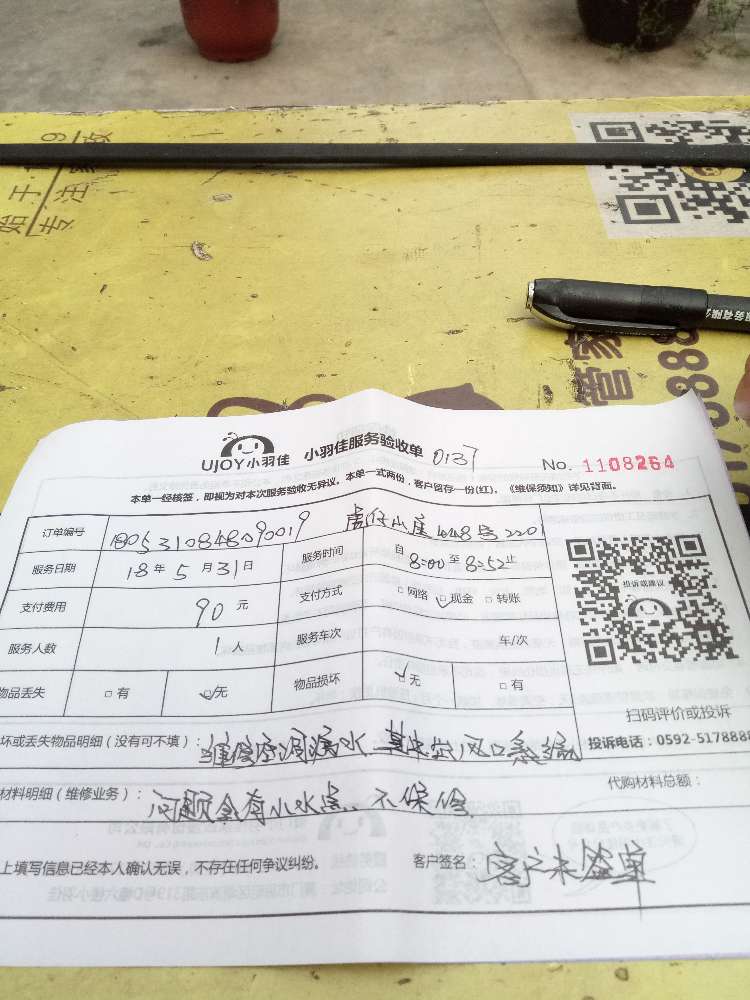 专注家政
管家
UJOY小羽佳 小羽佳服务验收单 0137 No. 1108264
本单一经核签，即视为对本次服务验收无异议。本单一式两份，客户留存一份(红)。《维保须知》详见背面。
订单编号 1805310848090019
448号2201
服务日期 18年 5月 31日 服务时间 自 8:00 至 8:52 止
支付费用 90 元 支付方式 □网络 ☑现金 □转账
服务人数 1 人 服务车次 车/次
物品丢失 □有 ☑无 物品损坏 ☑无 □有
投诉或建议
扫码评价或投诉
投诉电话：0592-5178888
坏或丢失物品明细（没有可不填）： 漏水 风口
代购材料总额：
材料明细（维修业务）： 问题会有小水点 不保修
上填写信息已经本人确认无误，不存在任何争议纠纷。 客户签名： 客户未签单